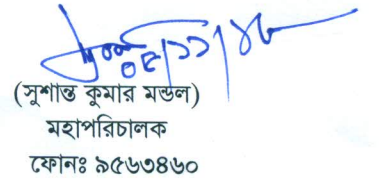 ০৫/১১/১৮
(সুশান্ত কুমার মন্ডল)
মহাপরিচালক
ফোনঃ ৯৫৬৩৪৬০